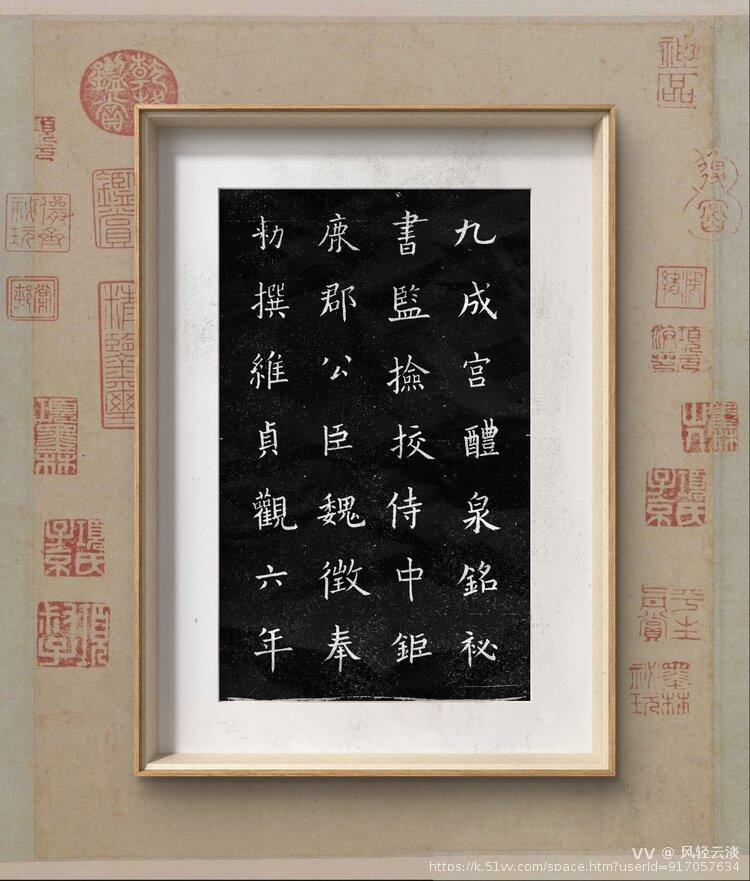 九成宫醴泉銘祕
書監撿挍侍中鉅
鹿郡公臣魏徵奉
勑撰維貞觀六年
神品
乾隆鑑賞
子京
墨林秘玩
VV @ 风轻云淡
https://k.51vv.com/space.htm?userId=917057634